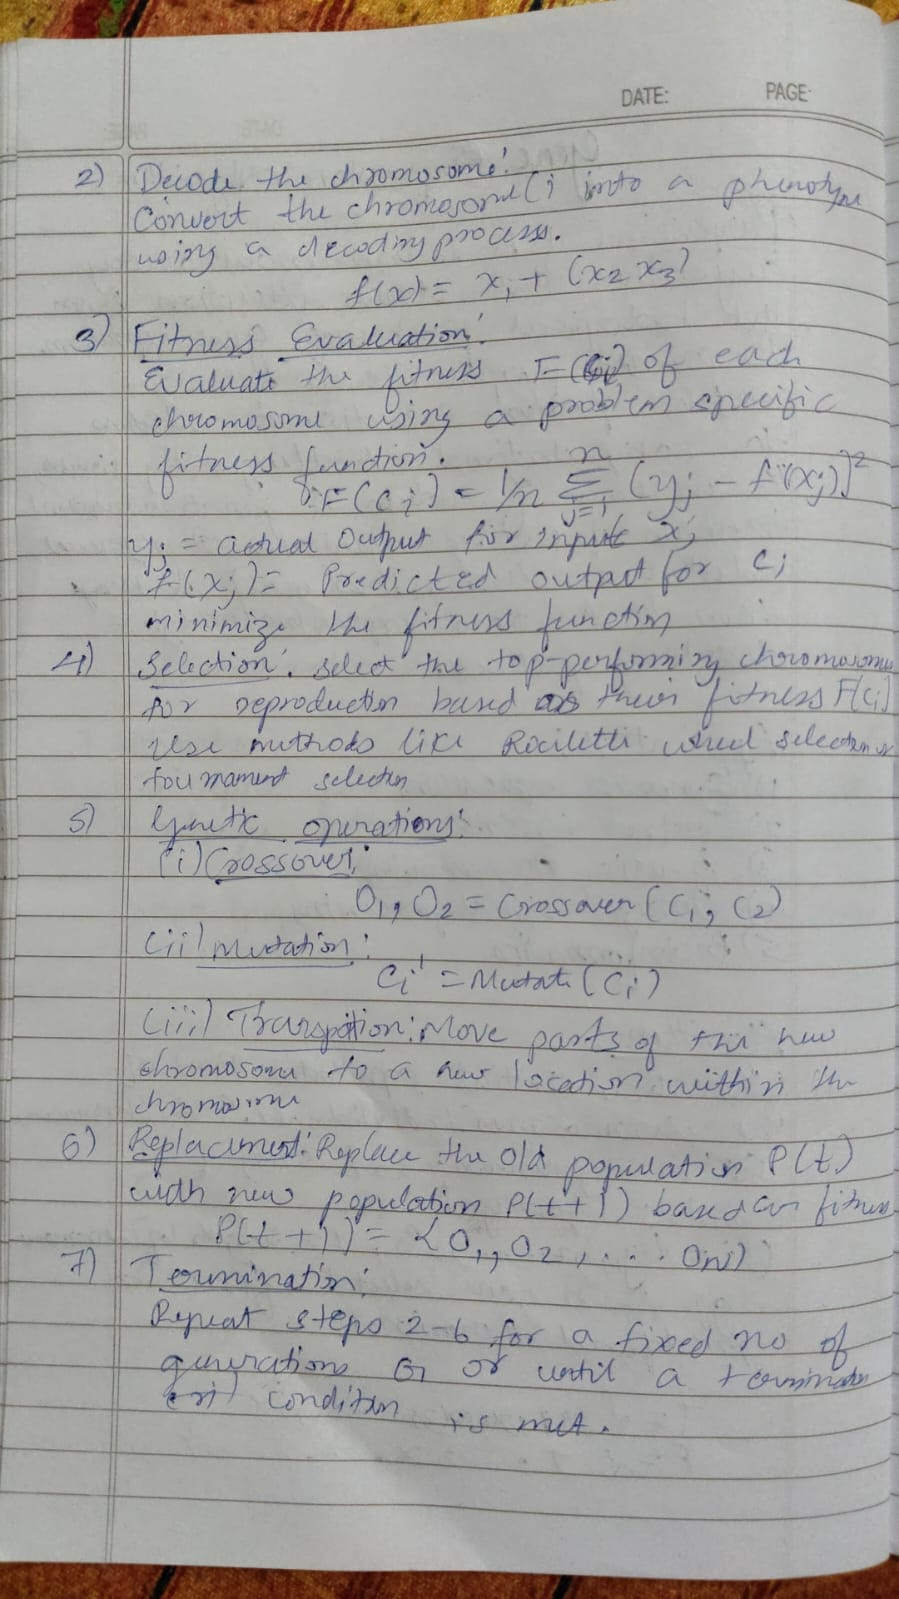 DATE: PAGE
2) Decode the chromosome:
Convert the chromosome Ci into a phenotype
using a decoding process.
f(x) = x1 + (x2 x3)
3) Fitness Evaluation:
Evaluate the fitness F(Ci) of each
chromosome using a problem specific
fitness function.
F(Ci) = 1/n Σ (yj - f(xj))²
n
j=1
yj = actual output for input xj
f(xj) = Predicted output for Ci
minimize the fitness function
4) Selection: select the top-performing chromosomes
for reproduction based on their fitness F(Ci)
Use methods like wheel selection or
tournament selection
5) Genetic operations:
(i) Crossover:
O1, O2 = Crossover (C1, C2)
(ii) Mutation:
Ci' = Mutate (Ci)
(iii) Move parts of the new
chromosome to a new location within the
chromosome
6) Replacement: Replace the old population P(t)
with new population P(t+1) based on fitness
P(t+1) = {O1, O2, .... ON}
7) Termination:
Repeat steps 2-6 for a fixed no of
generations G or until a
condition is met.